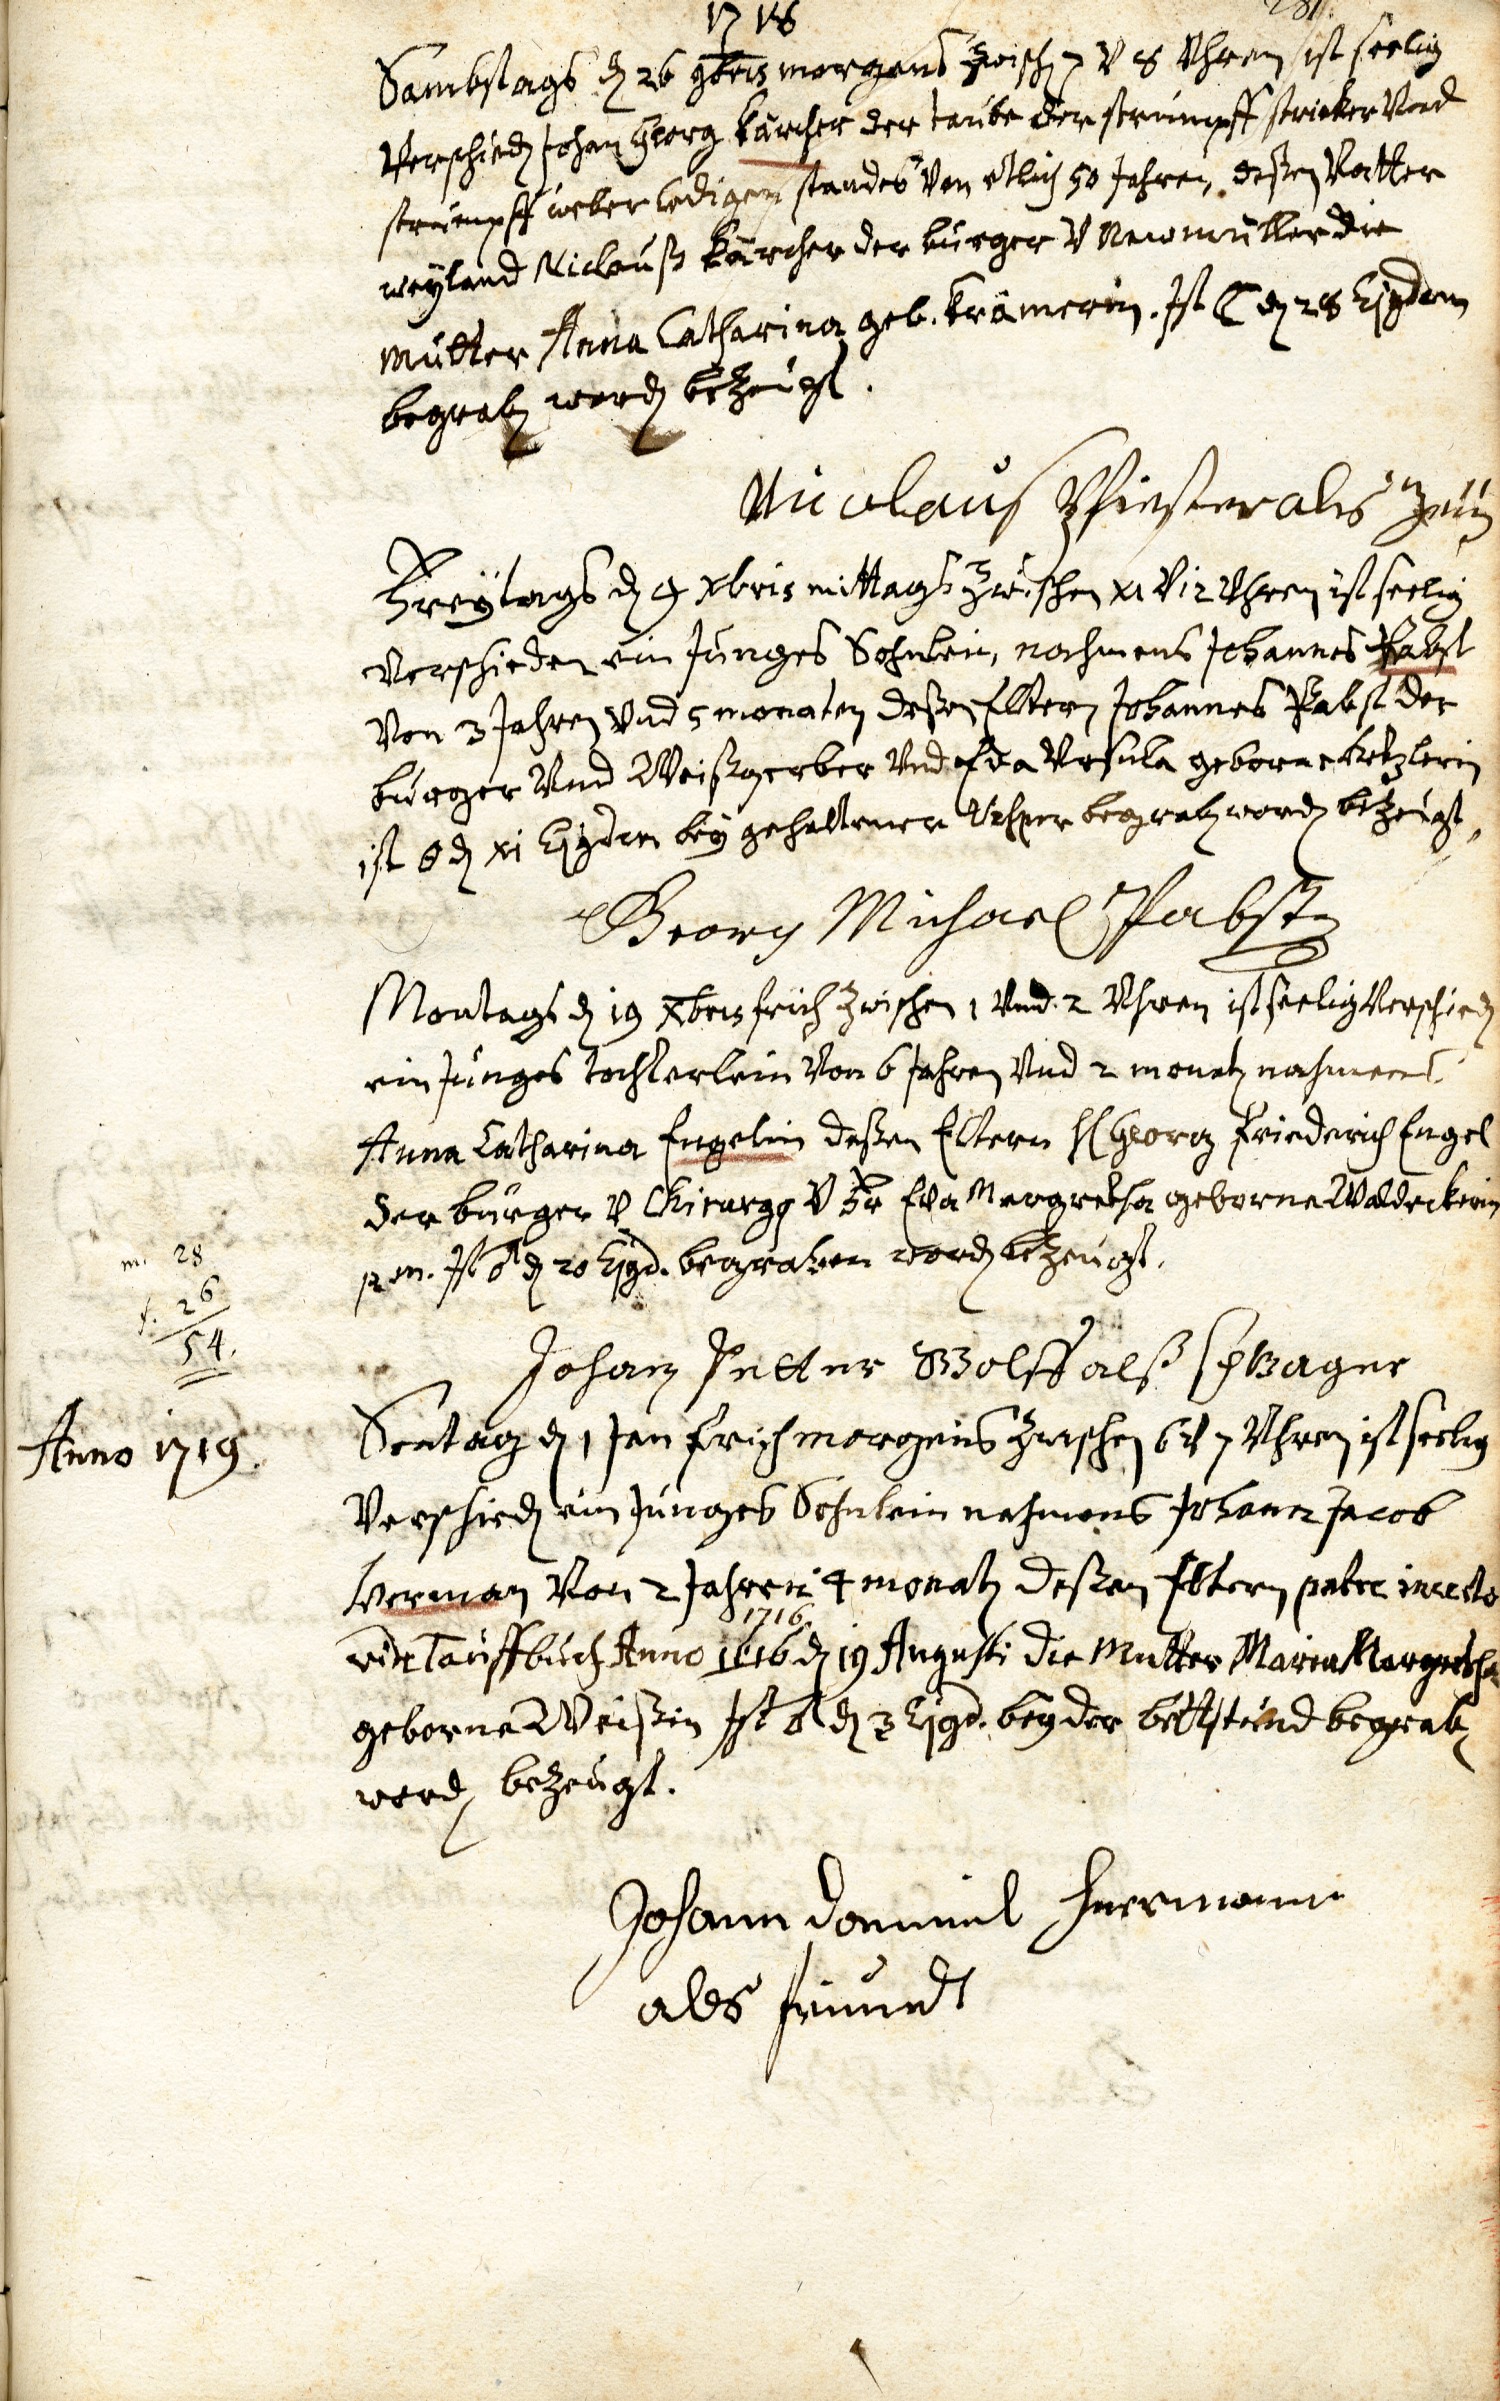 1718
281
Sambstags dᵉ 26 9bris morgens zwisch 7 v 8 Uhren ist seelig
Verschied Johan Georg Kärcher der taube der strümpff stricker Vnd
strümpff weber ledigen standes Von etlich 50 Jahren, deßen Vatter
weyland Niclauß Kärcher der bürger v Newmüller die
Mutter Anna Catharina geb. Krämerin. Ist ☾ d 28 Ejusdem
begrab word bezeugt.
Nicolaus Pfister als Zeüg
Freytags d 9 Xbris mittags zwischen XI v 12 Uhren ist seelig
Verschieden ein Junges Sohnlein, nahmens Johannes Pabst
Von 3 Jahren Vnd 5 monaten deßen Eltern Johannes Pabst der
bürger Vnd Weißgerber Vnd Eva Vrsula geborne Ketzlerin
ist d XI Ejusdem bey gehaltener Vesper begrab word bezeugt,
Georg Michael Pabst
Montags d 19 Xbris früh zwischen 1 Vnd 2 Uhren ist seelig Verschied
ein Junges tochterlein Von 6 Jahren Vnd 2 monat nahmens
Anna Catharina Engelin deßen Eltern H Georg Friederich Engel
der bürger v Chirurg v Fr Eva Margretha geborne Waldeckerin
p.m. Ist ♂ d 20 Ejusd. begraben word bezeugt.
m. 28
f. 26
54.
Johan Petter Wolff alß schwager
Anno 1719.
Sontag d 1 Jan früh morgens zwischen 6 v 7 Uhren ist seelig
Verschied ein Junges Sohnlein nahmens Johann Jacob
Herman Von 2 Jahren 4 monat deßen Eltern pater incerto
vide Tauffbuch Anno 1616 d 19 Augusti die Mutter Maria Margretha
1716.
geborne Weißin Ist ♂ d 3 Ejusd. bey der bettstund begrab
word bezeugt.
Johann Daniel Herrmann
als freundt